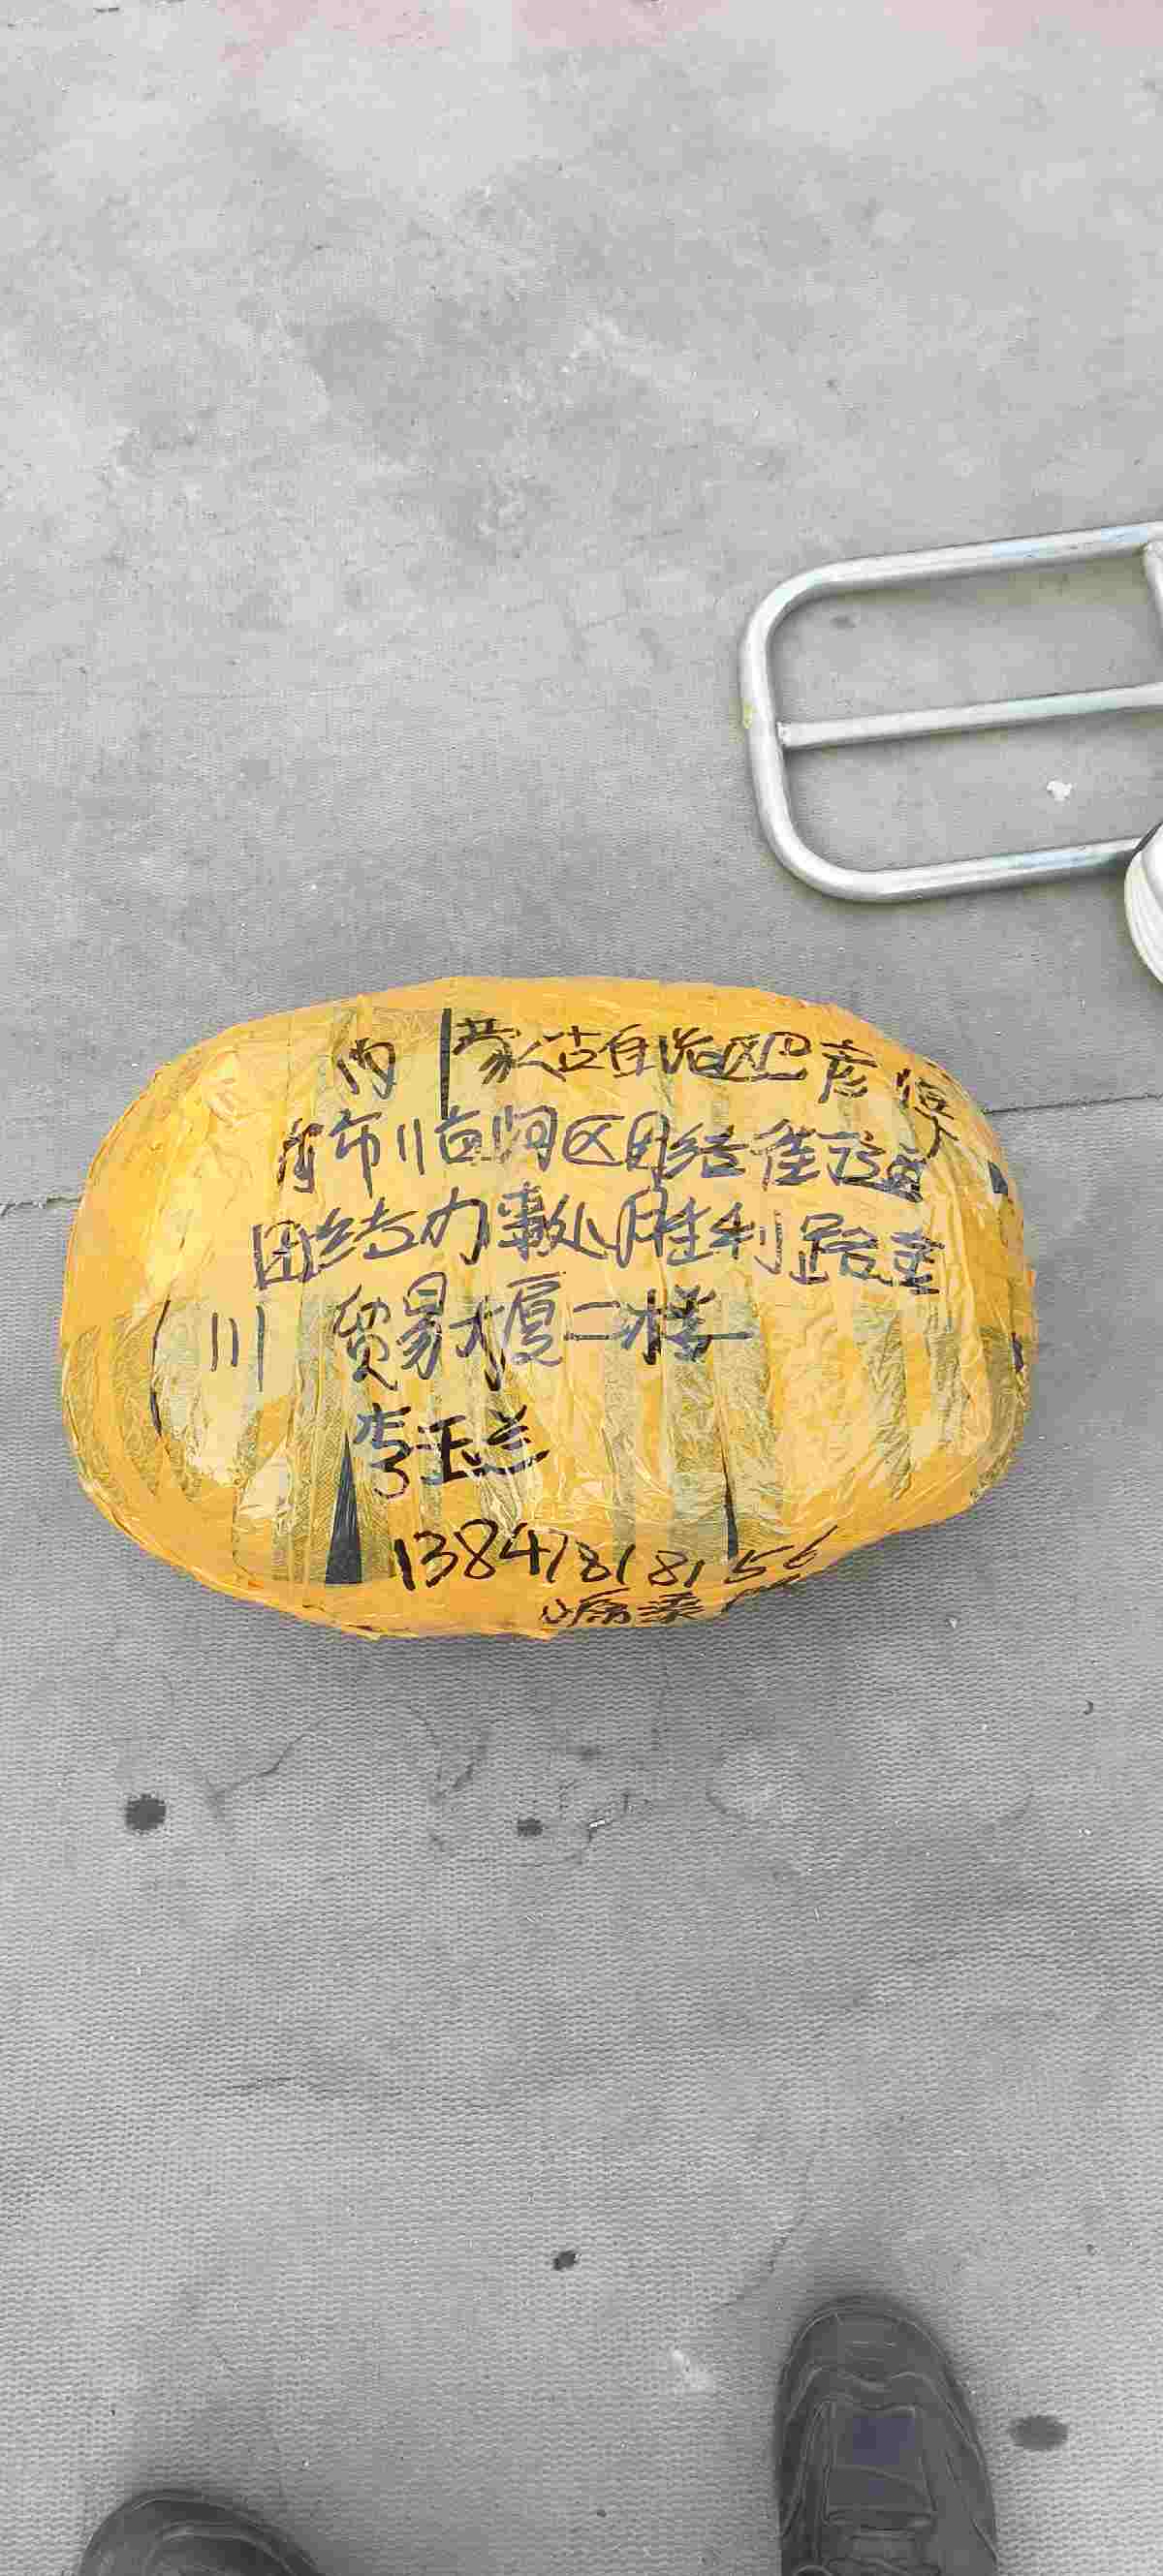 内蒙古自治区巴彦淖
尔市临河区团结街道
团结办事处胜利路金
川 贸易大厦二楼
李玉兰
13847818156